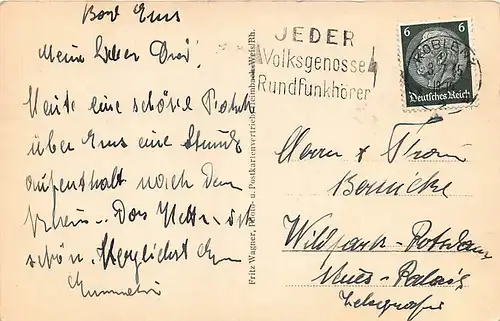 Bad Ems
Mein lieber Onkel!
Heute eine schöne Fahrt
über Ems eine Stunde
aufenthalt nach dem
Rhein. Das Wetter ist
schön. Herzlichst Ihr
Fritz Wagner, Photo- u. Postkartenvertrieb,
JEDER
Volksgenosse
Rundfunkhörer
6 6
KOBLENZ
Deutsches Reich
Herrn & Frau
Wildpark-Potsdam
Neues-Palais